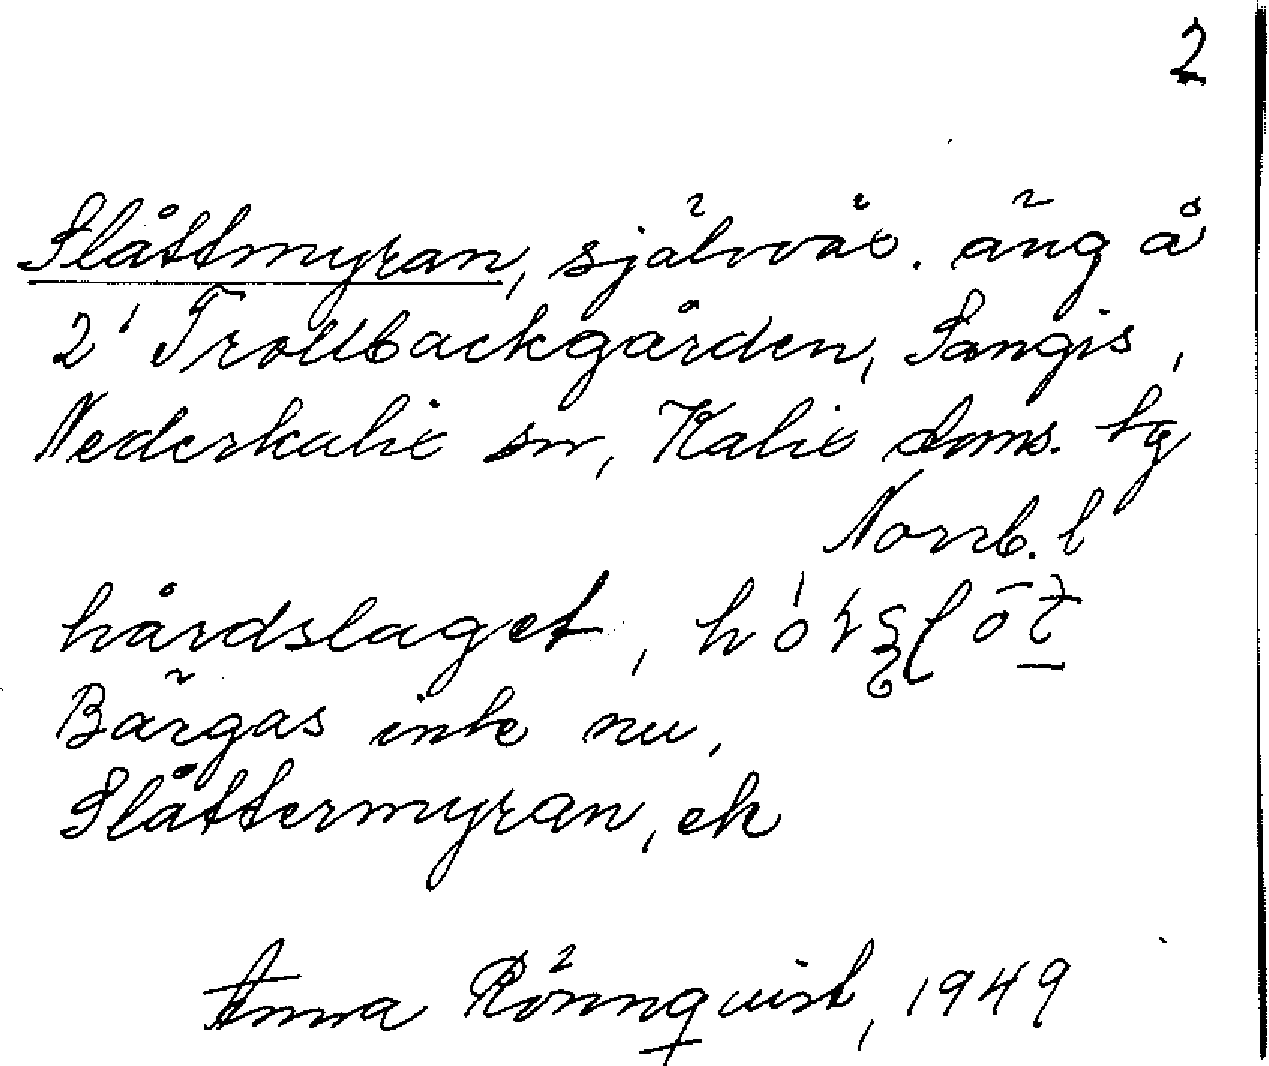 2
Slåttmyran, självväx. äng å
2' Trollbackgården, Sangis,
Nederkalix sn, Kalix doms. lg
Norrb. l
hårdslaget,
Bärgas inte nu,
Slåttermyran, ek
Anna Rönnquist, 1949